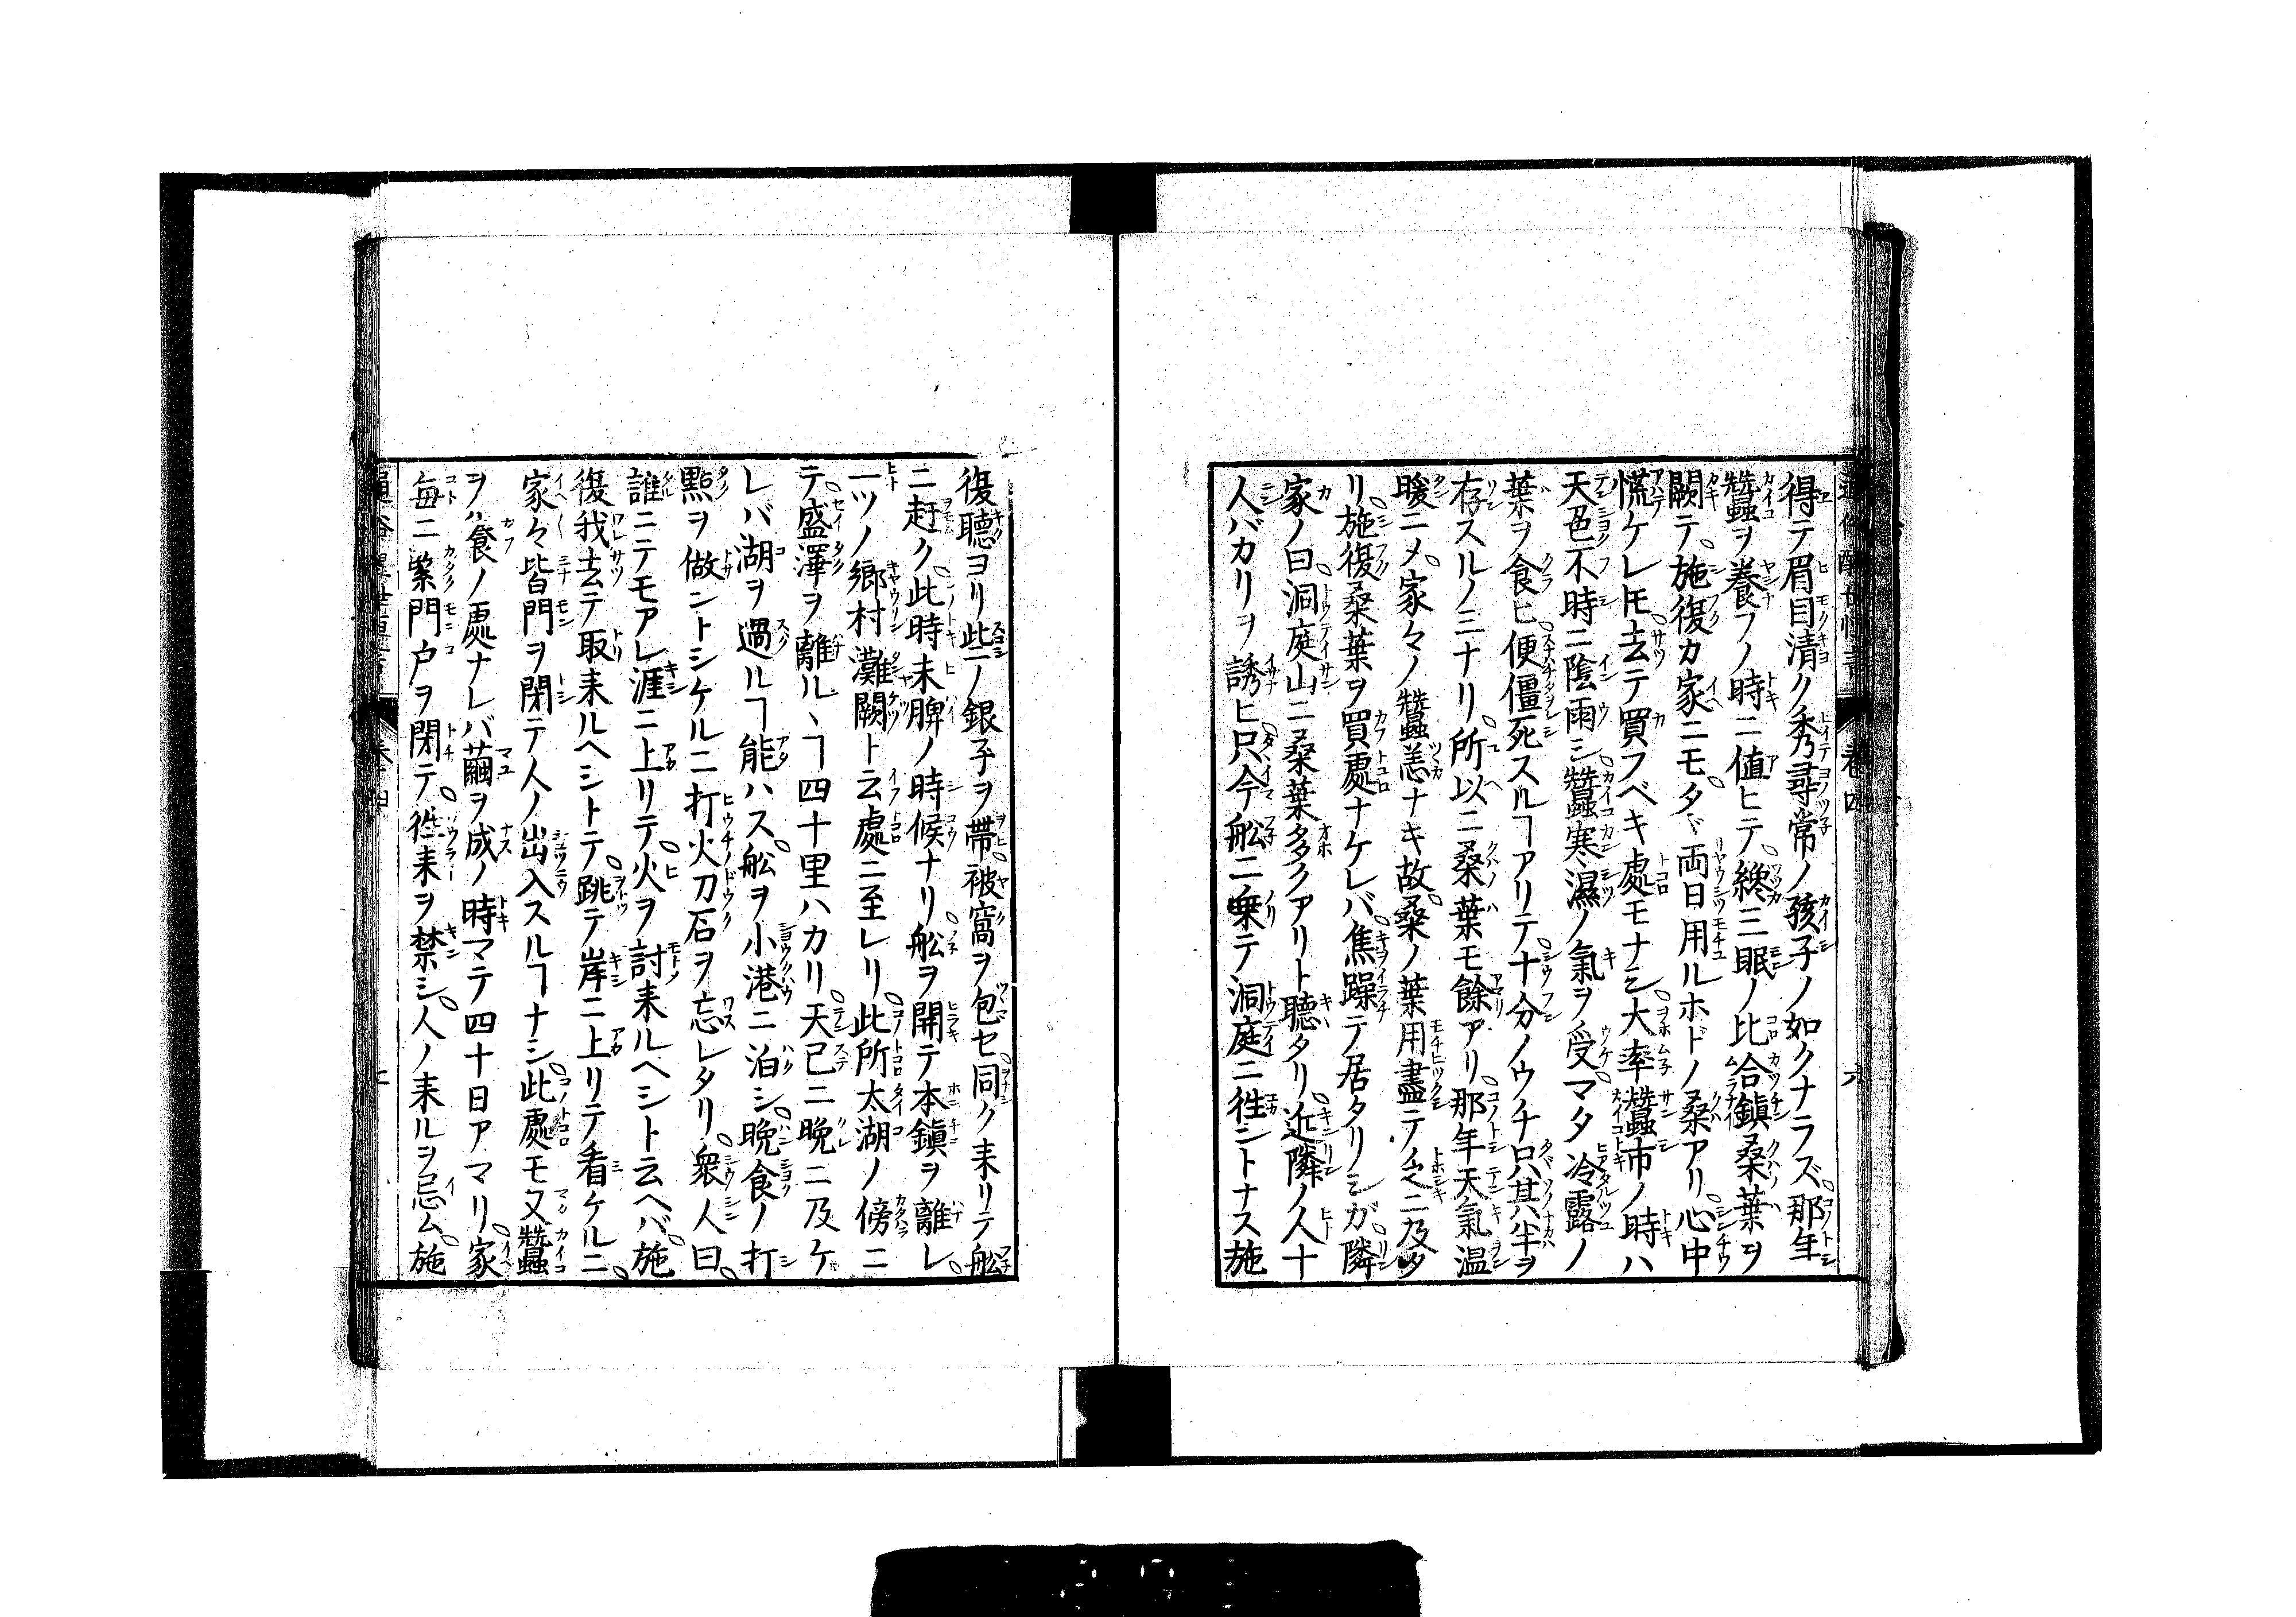 得テ眉目清ク秀尋常ノ孩子ノ如クナラズ那年
蠶ヲ養フノ時ニ値ヒテ纔三眠ノ比合鎮桑葉ヲ
闕テ施復カ家ニモタヾ両日用ルホドノ桑アリ心中
慌ケレ𪜈去テ買フベキ處モナシ大率蠶市ノ時ハ
天色不時ニ陰雨シ蠶寒濕ノ氣ヲ受マタ冷露ノ
葉ヲ食ヒ便僵死スルヿアリテ十分ノウチ只其半ヲ
存スルノミナリ所以ニ桑葉モ餘アリ那年天氣温
暖ニメ家々ノ蠶恙ナキ故桑ノ葉用盡テ乏ニ及タ
リ施復桑葉ヲ買處ナケレバ焦躁テ居タリシガ隣
家ノ曰洞庭山ニ桑葉多クアリト聴タリ近隣ノ人十
人バカリヲ誘ヒ只今舩ニ乗テ洞庭ニ徃ントナス施
復聴ヨリ些ノ銀子ヲ帯被窩ヲ包セ同ク来リテ舩
ニ赶ク此時未脾ノ時候ナリ舩ヲ開テ本鎮ヲ離レ
一ツノ郷村灘闕ト云處ニ至レリ此所太湖ノ傍ニ
テ盛澤ヲ離ルヽヿ四十里ハカリ天已ニ晩ニ及ケ
レバ湖ヲ過ルヿ能ハス舩ヲ小港ニ泊シ晩食ノ打
點ヲ做ントシケルニ打火刀石ヲ忘レタリ衆人曰
誰ニテモアレ涯ニ上リテ火ヲ討来ルヘシト云ヘバ施
復我去テ取来ルヘシトテ跳テ岸ニ上リテ看ケルニ
家々皆門ヲ閉テ人ノ出入スルヿナシ此處モ又蠶
ヲ養ノ處ナレバ繭ヲ成ノ時マテ四十日アマリ家
毎ニ緊門户ヲ閉テ徃来ヲ禁シ人ノ来ルヲ忌ム施